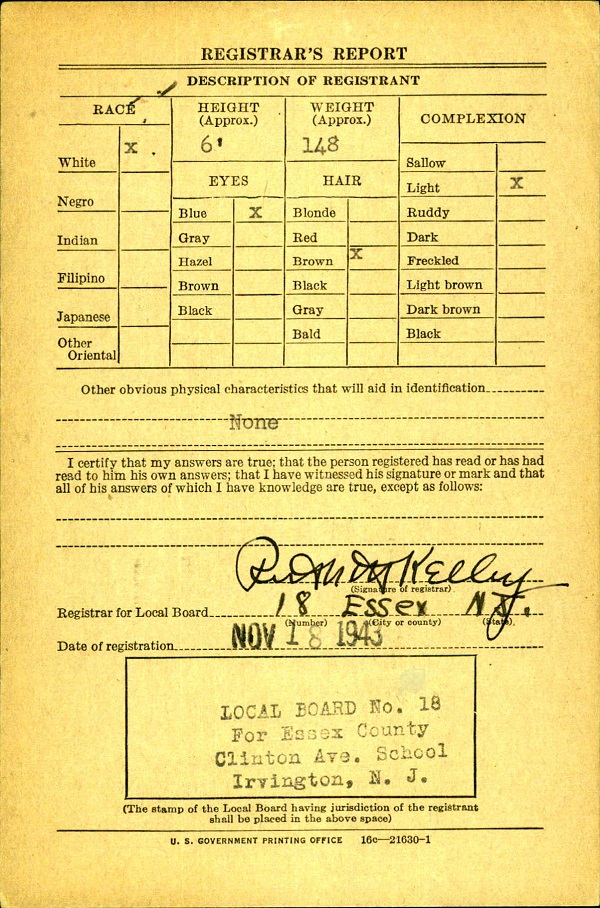 REGISTRAR'S REPORT
DESCRIPTION OF REGISTRANT
RACE
HEIGHT
(Approx.)
WEIGHT
(Approx.)
COMPLEXION
6'
148
White X
Negro
Indian
Filipino
Japanese
Other
Oriental
EYES
Blue X
Gray
Hazel
Brown
Black
HAIR
Blonde
Red
Brown X
Black
Gray
Bald
Sallow
Light X
Ruddy
Dark
Freckled
Light brown
Dark brown
Black
Other obvious physical characteristics that will aid in identification
None
I certify that my answers are true; that the person registered has read or has had
read to him his own answers; that I have witnessed his signature or mark and that
all of his answers of which I have knowledge are true, except as follows:
Kelley
(Signature of registrar)
Registrar for Local Board 18 Essex N.J.
(Number) (City or county) (State)
Date of registration NOV 18 1943
LOCAL BOARD No. 18
For Essex County
Clinton Ave. School
Irvington, N. J.
(The stamp of the Local Board having jurisdiction of the registrant
shall be placed in the above space)
U. S. GOVERNMENT PRINTING OFFICE 16c—21630-1